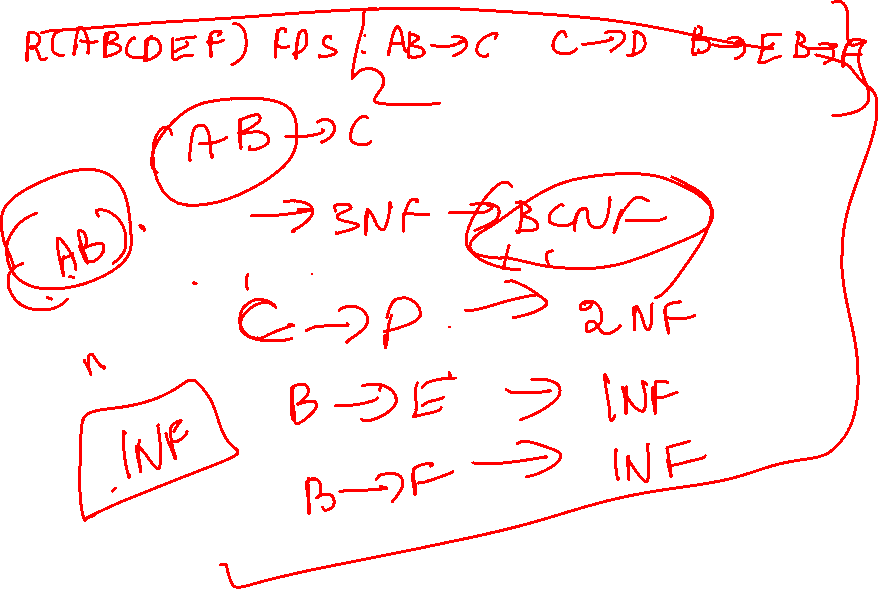 R(ABCDEF) FDS { AB→C C→D B→E B→F }
AB→C
(AB)
→ 3NF → BCNF
C→D → 2NF
B→E → 1NF
1NF
B→F → 1NF